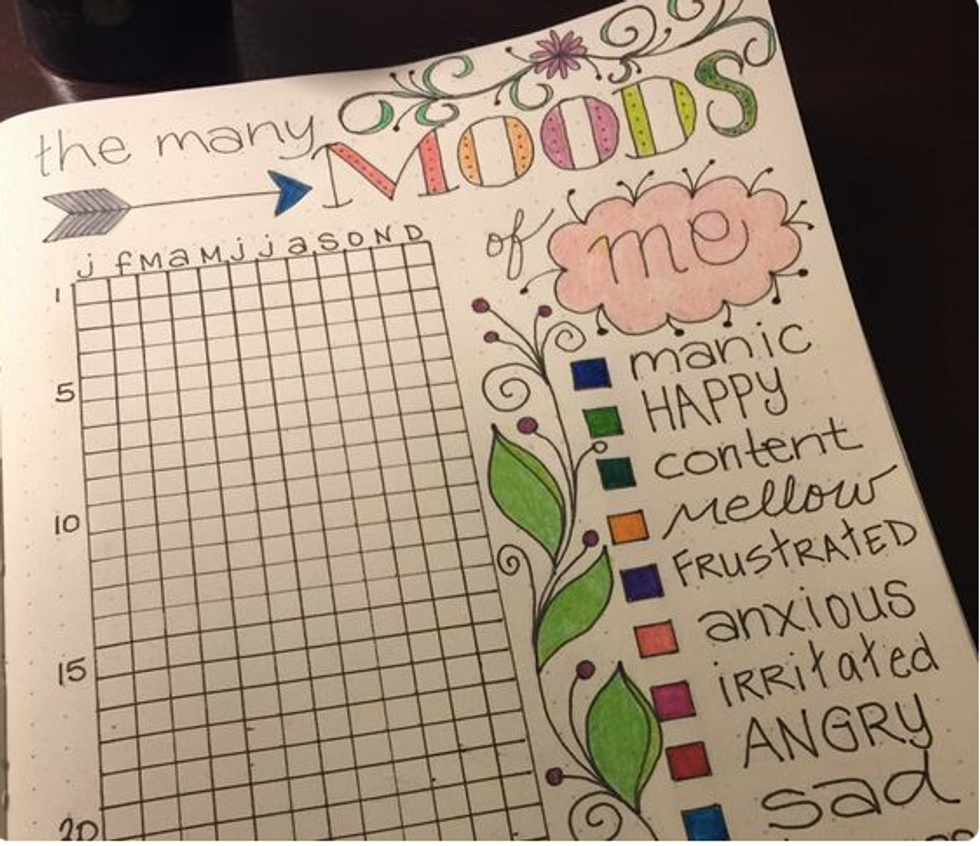 the many
MOODS
of me
j f M a M j j a S O N D
1
5
10
15
20
manic
HAPPY
content
mellow
FRUSTRATED
anxious
iRRitated
ANGRY
sad